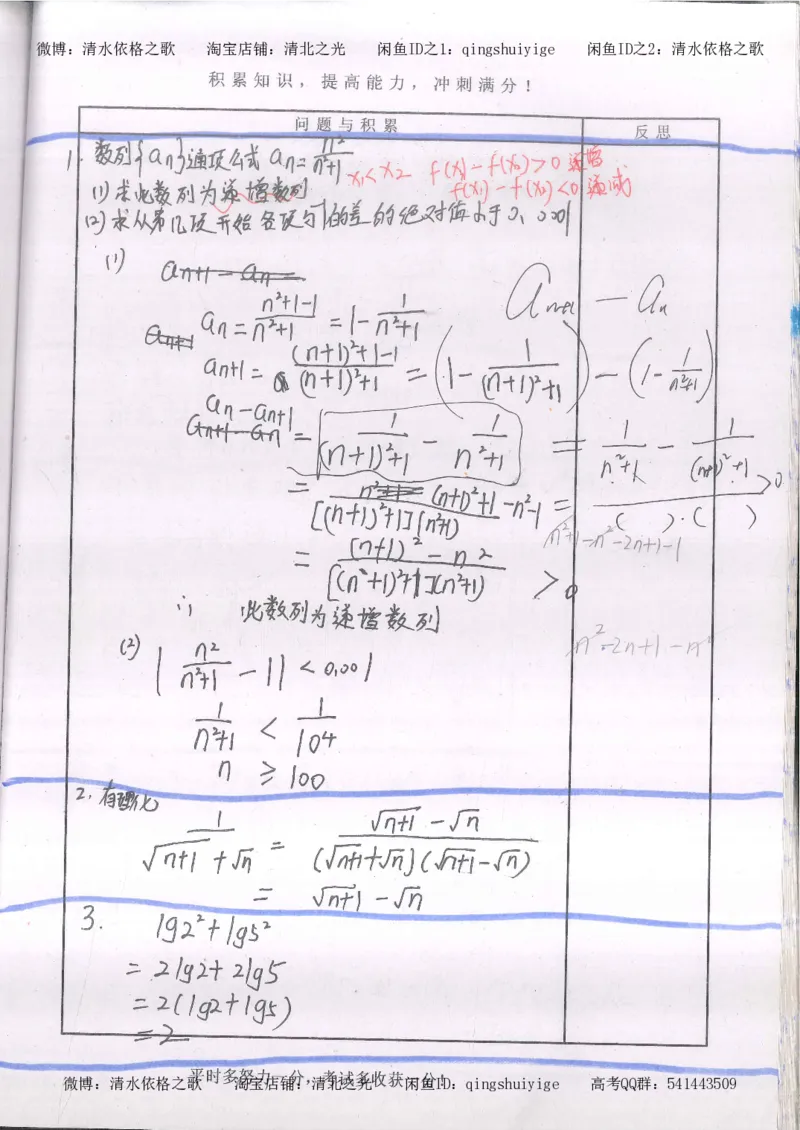 微博：清水依格之歌 淘宝店铺：清北之光 闲鱼ID之1：qingshuiyige 闲鱼ID之2：清水依格之歌
积累知识，提高能力，冲刺满分！
问题与积累 反思
1. 数列{an}通项公式 an = n²/(n²+1)
x₁<x₂ f(x₁)-f(x₂)>0 递增
f(x₁)-f(x₂)<0 递减
(1) 求此数列为递增数列
(2) 求从第几项开始各项与1的差的绝对值小于0.0001
(1)
an+1 - an =
an+1
an = (n²+1-1)/(n²+1) = 1 - 1/(n²+1)
an+1 = ((n+1)²+1-1)/((n+1)²+1)
an - an+1
an+1 - an = 1/((n+1)²+1) - 1/(n²+1)
= (n²+1= (n+1)²+1-n²-1)/([(n+1)²+1](n²+1))
= ((n+1)² - n²)/([(n²+1)²+1](n²+1)) > 0
∴ 此数列为递增数列
an+1 - an
= (1 - 1/((n+1)²+1)) - (1 - 1/(n²+1))
= 1/(n²+1) - 1/((n+1)²+1)
= /( )·( ) >0
n²+1-n²-2n+1-1
n²-2n+1-n²
(2) | n²/(n²+1) - 1| < 0.001
1/(n²+1) < 1/104
n ≥ 100
2. 有理化
1/(√n+1 + √n) = (√n+1 - √n)/((√n+1+√n)(√n+1-√n))
= √n+1 - √n
3. lg2²+lg5²
= 2lg2+2lg5
= 2(lg2+lg5)
= 2
平时多努力一分，考试多收获一分！
微博：清水依格之歌 淘宝店铺：清北之光 闲鱼ID：qingshuiyige 高考QQ群：541443509